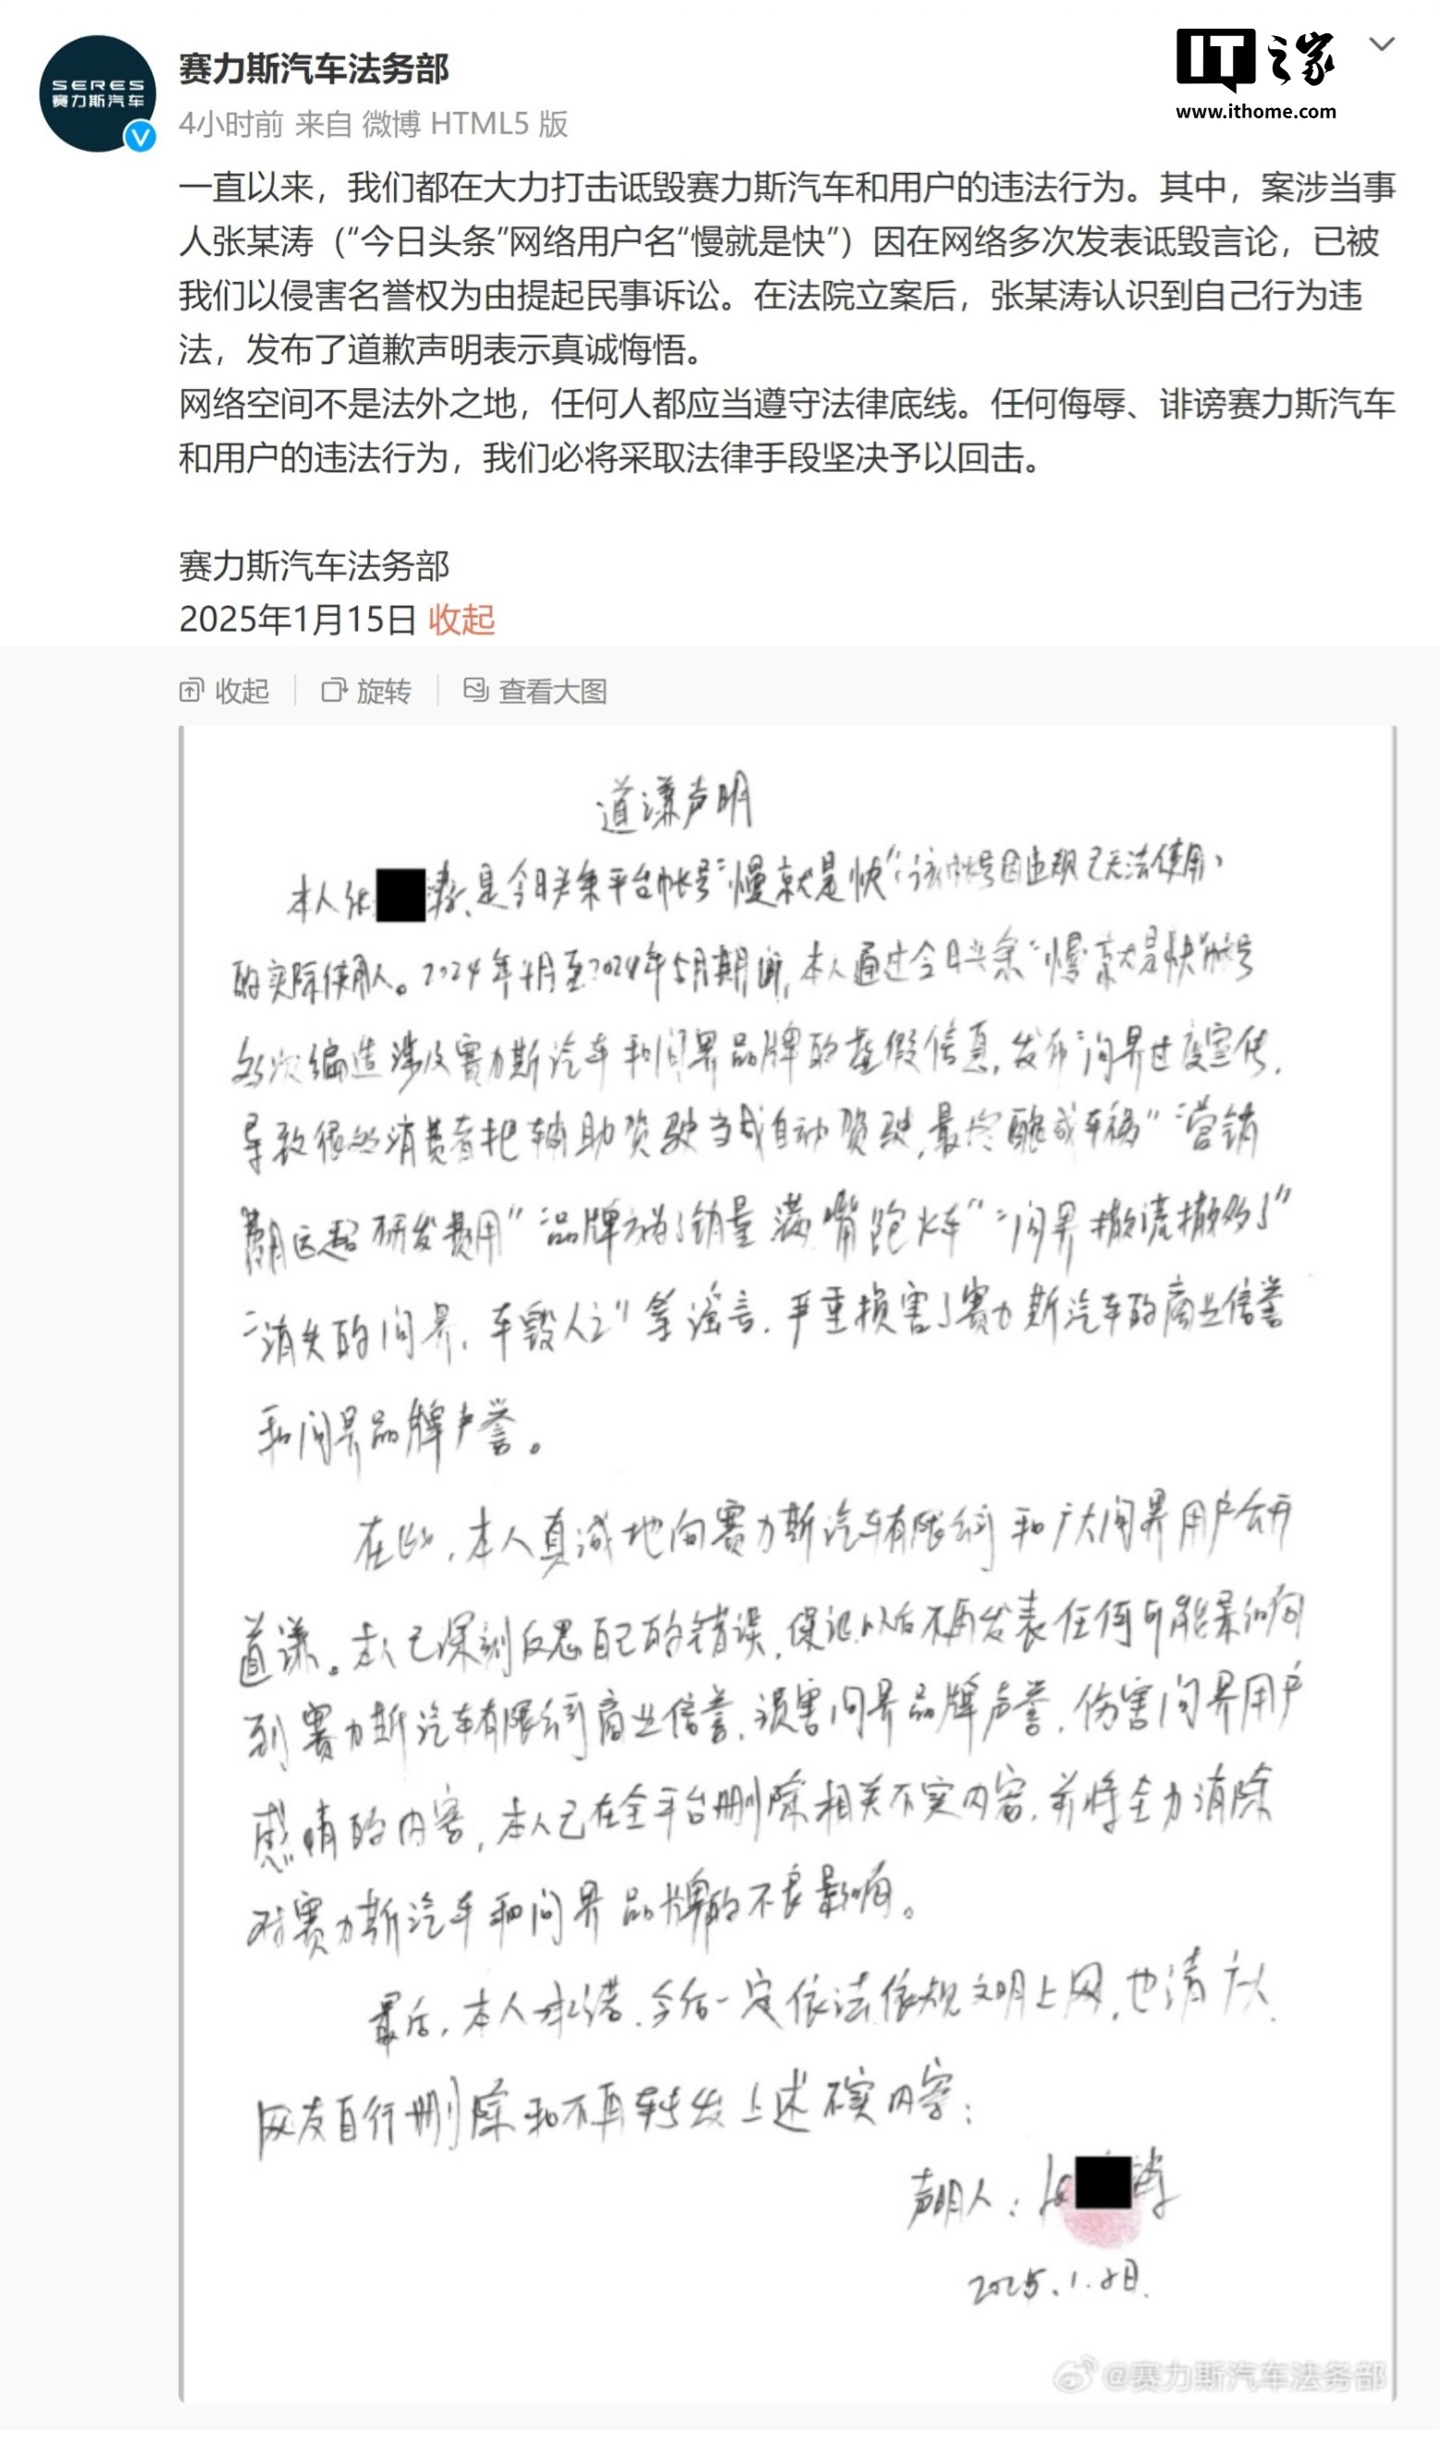 赛力斯汽车法务部
IT之家
www.ithome.com
SERES
赛力斯汽车
4小时前 来自 微博 HTML5 版
一直以来，我们都在大力打击诋毁赛力斯汽车和用户的违法行为。其中，案涉当事
人张某涛（“今日头条”网络用户名“慢就是快”）因在网络多次发表诋毁言论，已被
我们以侵害名誉权为由提起民事诉讼。在法院立案后，张某涛认识到自己行为违
法，发布了道歉声明表示真诚悔悟。
网络空间不是法外之地，任何人都应当遵守法律底线。任何侮辱、诽谤赛力斯汽车
和用户的违法行为，我们必将采取法律手段坚决予以回击。
赛力斯汽车法务部
2025年1月15日 收起
收起 旋转 查看大图
道谦声明
本人张 涛，是今日头条平台帐号“慢就是快”（该帐号因违规已无法使用）
的实际使用人。2024年4月至2024年5月期间，本人通过今日头条“慢就是快”帐号
多次编造涉及赛力斯汽车和问界品牌的虚假信息，发布“问界过度宣传，
导致很多消费者把辅助驾驶当成自动驾驶，最终酿成车祸”“营销
费用远超研发费用”“品牌方为了销量满嘴跑火车”“问界撒谎撒多了”
“消失的问界，车毁人亡”等谣言，严重损害了赛力斯汽车的商业信誉
和问界品牌声誉。
在此，本人真诚地向赛力斯汽车有限公司和广大问界用户公开
道谦。本人已深刻反思自己的错误，保证以后不再发表任何可能影响
到赛力斯汽车有限公司商业信誉，损害问界品牌声誉，伤害问界用户
感情的内容，本人已在全平台删除相关不实内容，并将全力消除
对赛力斯汽车和问界品牌的不良影响。
最后，本人承诺，今后一定依法依规文明上网，也请广大
网友自行删除和不再转发上述不实内容；
声明人：张 涛
2025.1.8日.
@赛力斯汽车法务部